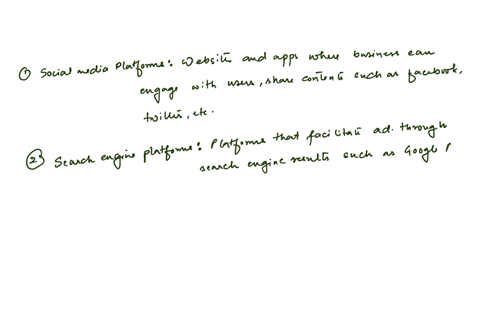 ① Social media Platforms: Websites and apps where business can
engage with users, share contents such as facebook,
twitter, etc.
② Search engine platforms: Platforms that facilitate ad. through
search engine results such as Google